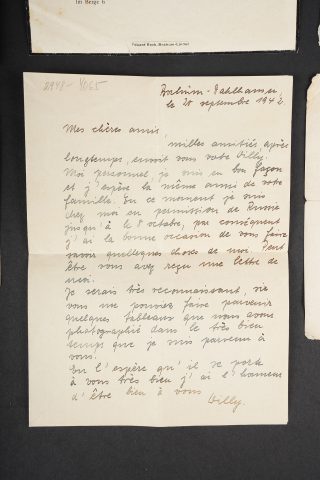 im Berge 6
2948-4065
Bochum-Dahlhausen,
le 20 septembre 1942.
Mes chères amis,
milles amitiés, après
longtemps, envoit vous votre Willy.
Moi personnel je suis en bon façon
et j'espère la même aussi de votre
famille. En ce moment je suis
chez moi en permission de
jusqu'à le 8 octobre, par conséquent
j'ai la bonne occasion de vous faire
savoir quellesques choses de moi. Peut
être vous avez reçu une lettre de
moi.
Je serais très reconnaissant, si
vous me pouvez faire parvenir
quelques tableaux que nous avons
photographié dans le très bien
temps que je suis parvenu à
vous.
En l'espère qu'il se porte
à vous très bien j'ai l'honneur
d'être bien à vous
Willy.